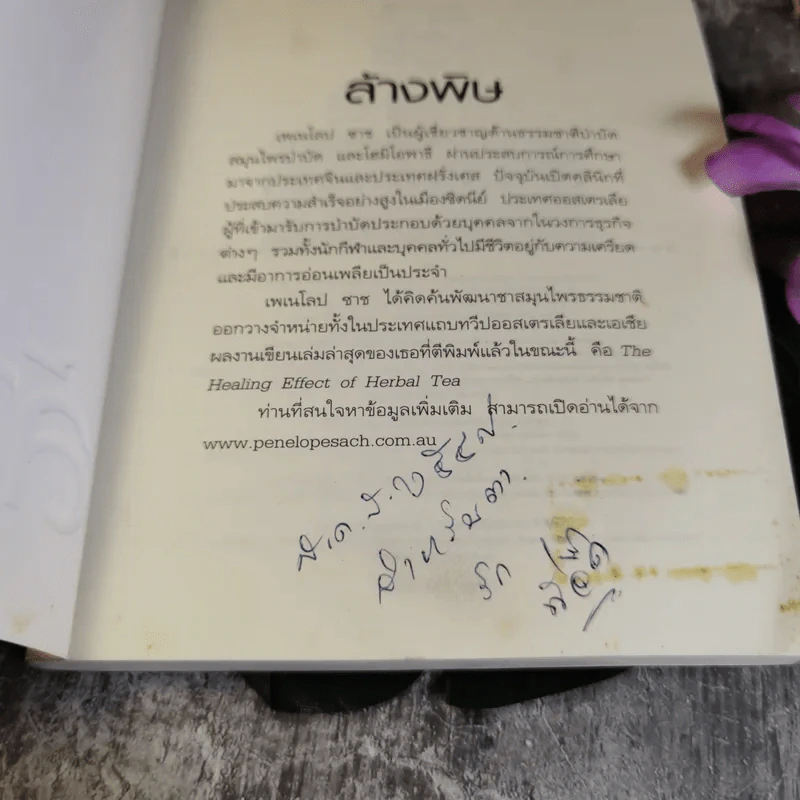 ล้างพิษ
เพเนโลป ซาช เป็นผู้เชี่ยวชาญด้านธรรมชาติบำบัด
สมุนไพรบำบัด และโฮมิโอพาธี ผ่านประสบการณ์การศึกษา
มาจากประเทศจีนและประเทศฝรั่งเศส ปัจจุบันเปิดคลินิกที่
ประสบความสำเร็จอย่างสูงในเมืองซิดนีย์ ประเทศออสเตรเลีย
ผู้ที่เข้ามารับการบำบัดประกอบด้วยบุคคลจากในวงการธุรกิจ
ต่างๆ รวมทั้งนักกีฬาและบุคคลทั่วไปมีชีวิตอยู่กับความเครียด
และมีอาการอ่อนเพลียเป็นประจำ
เพเนโลป ซาช ได้คิดค้นพัฒนาชาสมุนไพรธรรมชาติ
ออกวางจำหน่ายทั้งในประเทศแถบทวีปออสเตรเลียและเอเชีย
ผลงานเขียนเล่มล่าสุดของเธอที่ตีพิมพ์แล้วในขณะนี้ คือ The
Healing Effect of Herbal Tea
ท่านที่สนใจหาข้อมูลเพิ่มเติม สามารถเปิดอ่านได้จาก
www.penelopesach.com.au
สำหรับตา
รัก